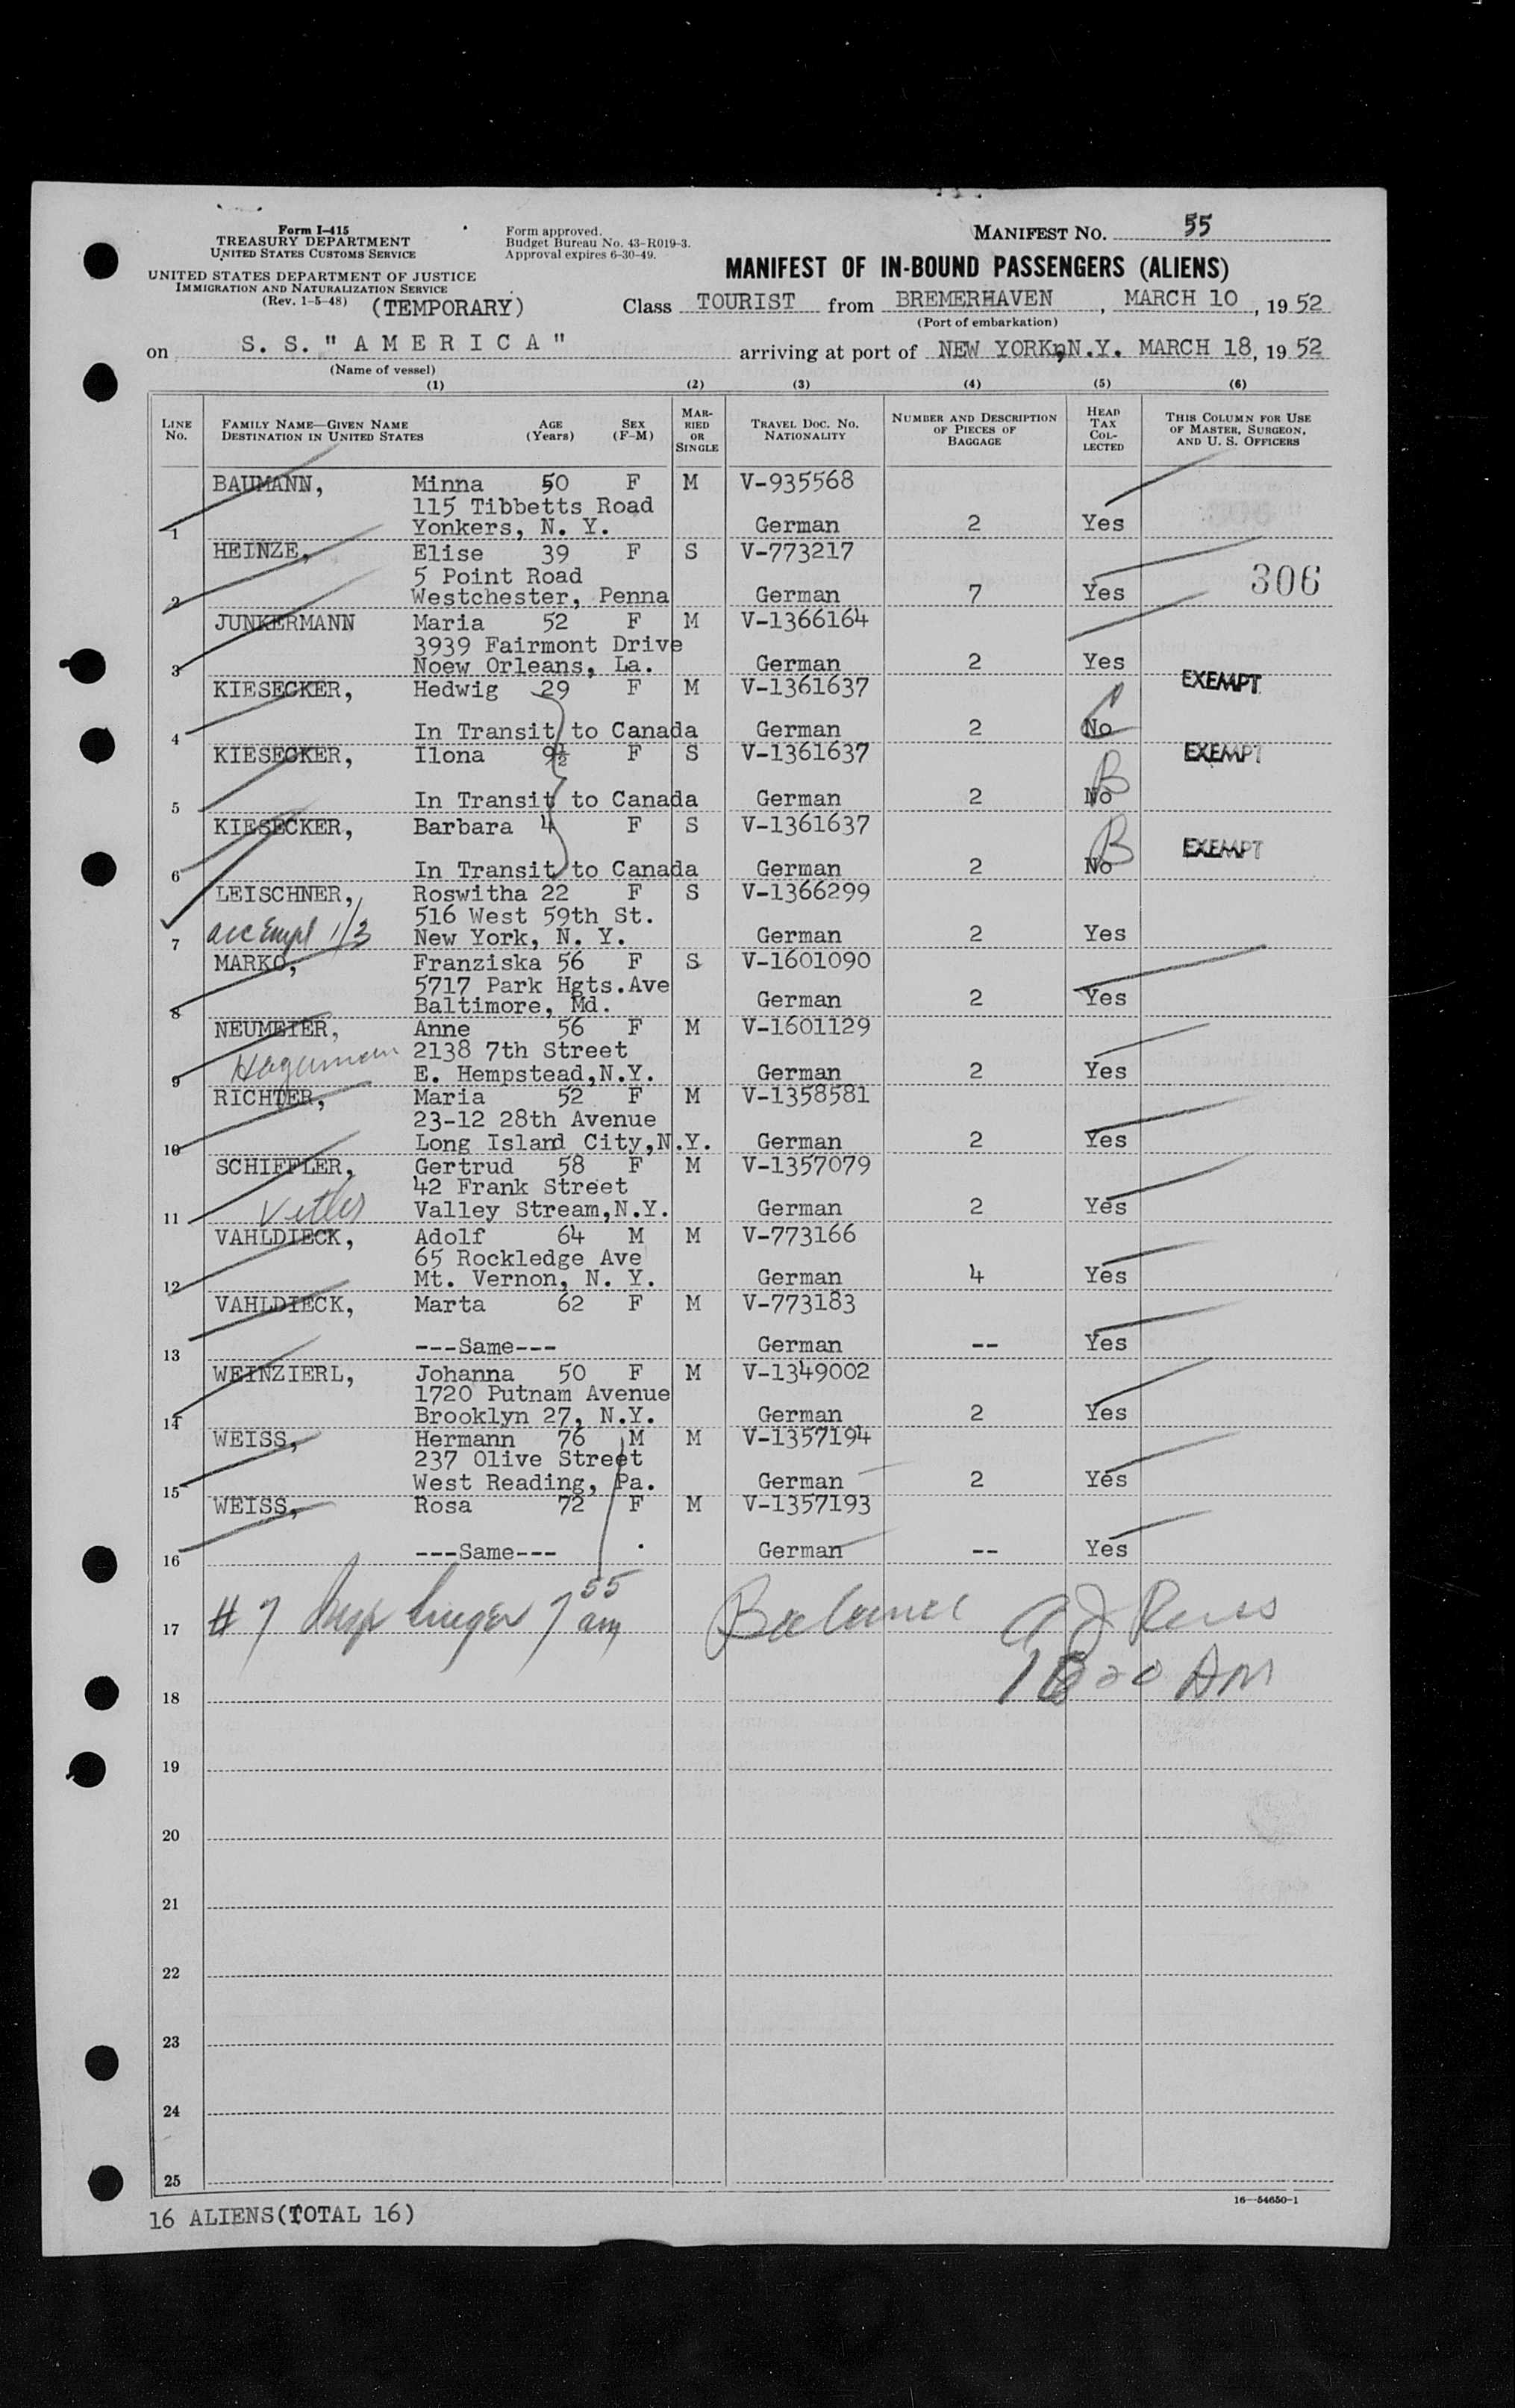 Form I-415
TREASURY DEPARTMENT
UNITED STATES CUSTOMS SERVICE
UNITED STATES DEPARTMENT OF JUSTICE
IMMIGRATION AND NATURALIZATION SERVICE
(Rev. 1-5-48) (TEMPORARY)
Form approved.
Budget Bureau No. 43-R019-3.
Approval expires 6-30-49.
MANIFEST NO. 55
MANIFEST OF IN-BOUND PASSENGERS (ALIENS)
Class TOURIST from BREMERHAVEN, MARCH 10, 1952
(Port of embarkation)
on S. S. "AMERICA" arriving at port of NEW YORK, N.Y. MARCH 18, 1952
(Name of vessel)
(1) (2) (3) (4) (5) (6)
LINE No. FAMILY NAME—GIVEN NAME DESTINATION IN UNITED STATES AGE (Years) SEX (F-M) MARRIED OR SINGLE TRAVEL DOC. NO. NATIONALITY NUMBER AND DESCRIPTION OF PIECES OF BAGGAGE HEAD TAX COLLECTED THIS COLUMN FOR USE OF MASTER, SURGEON, AND U. S. OFFICERS
BAUMANN, Minna 50 F M V-935568
115 Tibbetts Road
1 Yonkers, N. Y. German 2 Yes
HEINZE, Elise 39 F S V-773217
5 Point Road 306
2 Westchester, Penna German 7 Yes
JUNKERMANN Maria 52 F M V-1366164
3939 Fairmont Drive
3 Noew Orleans, La. German 2 Yes
KIESECKER, Hedwig 29 F M V-1361637 EXEMPT
4 In Transit to Canada German 2 No
KIESECKER, Ilona 9½ F S V-1361637 EXEMPT
5 In Transit to Canada German 2 No B
KIESECKER, Barbara 4 F S V-1361637 EXEMPT
6 In Transit to Canada German 2 No B
LEISCHNER, Roswitha 22 F S V-1366299
516 West 59th St.
7 acc Empl 1/3 New York, N. Y. German 2 Yes
MARKO, Franziska 56 F S V-1601090
5717 Park Hgts.Ave
8 Baltimore, Md. German 2 Yes
NEUMEIER, Anne 56 F M V-1601129
2138 7th Street
9 E. Hempstead,N.Y. German 2 Yes
RICHTER, Maria 52 F M V-1358581
23-12 28th Avenue
10 Long Island City,N.Y. German 2 Yes
SCHIFFLER, Gertrud 58 F M V-1357079
42 Frank Street
11 Valley Stream,N.Y. German 2 Yes
VAHLDIECK, Adolf 64 M M V-773166
65 Rockledge Ave
12 Mt. Vernon, N. Y. German 4 Yes
VAHLDIECK, Marta 62 F M V-773183
13 ---Same--- German -- Yes
WEINZIERL, Johanna 50 F M V-1349002
1720 Putnam Avenue
14 Brooklyn 27, N.Y. German 2 Yes
WEISS, Hermann 76 M M V-1357194
237 Olive Street
15 West Reading, Pa. German 2 Yes
WEISS, Rosa 72 F M V-1357193
16 ---Same--- German -- Yes
17 # 7 Insp 7 55 am Balance
18 AM
19
20
21
22
23
24
25
16—54650-1
16 ALIENS(TOTAL 16)